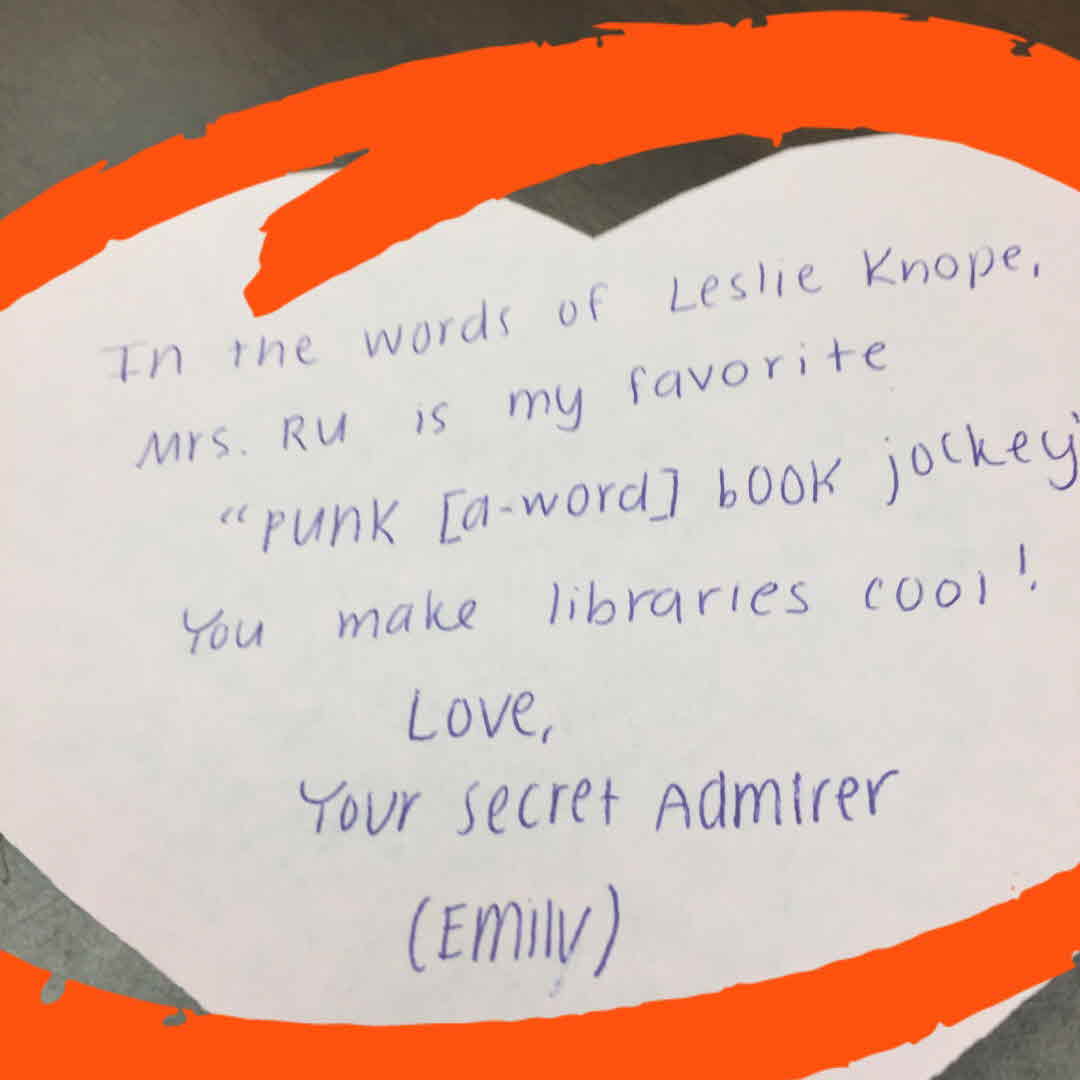 In the words of Leslie Knope,
Mrs. RU is my favorite
"punk [a-word] book jockey"
You make libraries cool!
Love,
Your secret Admirer
(Emily)